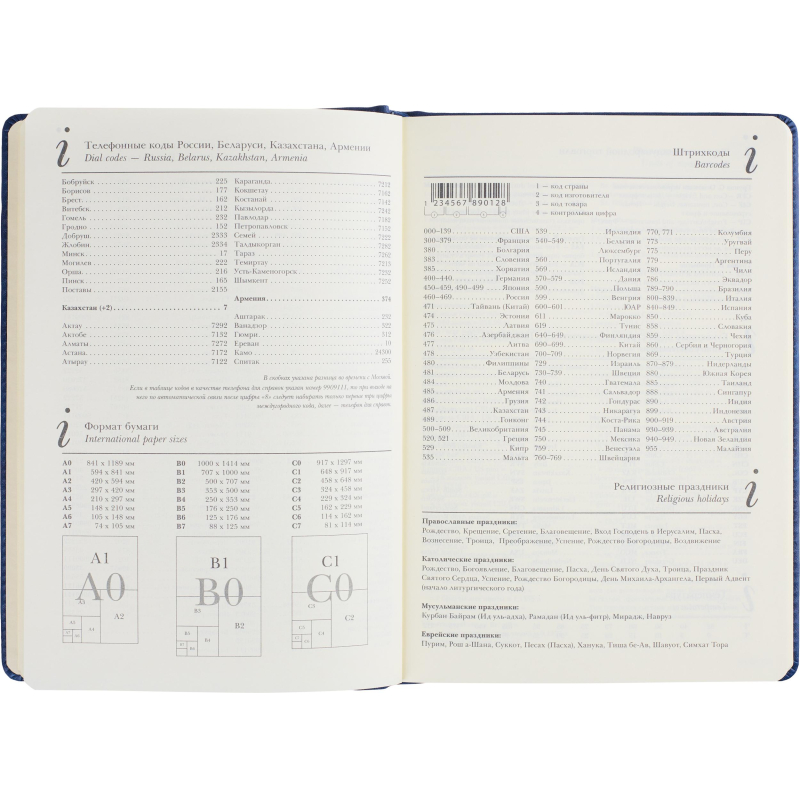 i
Телефонные коды России, Беларуси, Казахстана, Армении
Dial codes — Russia, Belarus, Kazakhstan, Armenia
Бобруйск 225
Борисов 177
Брест 162
Витебск 212
Гомель 232
Гродно 152
Добруш 2333
Жлобин 2334
Минск 17
Могилев 222
Орша 216
Пинск 165
Поставы 2155
Казахстан (+2) 7
Актау 7292
Актобе 7132
Алматы 7272
Астана 7172
Атырау 7122
Караганда 7212
Кокшетау 7162
Костанай 7142
Кызылорда 7242
Павлодар 7182
Петропавловск 7152
Семей 7222
Талдыкорган 7282
Тараз 7262
Темиртау 7213
Усть-Каменогорск 7232
Шымкент 7252
Армения 374
Аштарак 232
Ванадзор 322
Гюмри 312
Ереван 10
Камо 24300
Спитак 255
В скобках указана разница во времени с Москвой.
Если в таблице кодов в качестве телефона для справок указан номер 9909111, то при выходе на
него по автоматической связи после цифры «8» следует набирать только первые три цифры
междугородного кода, далее — телефон для справок.
i
Формат бумаги
International paper sizes
A0 841 x 1189 мм
A1 594 x 841 мм
A2 420 x 594 мм
A3 297 x 420 мм
A4 210 x 297 мм
A5 148 x 210 мм
A6 105 x 148 мм
A7 74 x 105 мм
B0 1000 x 1414 мм
B1 707 x 1000 мм
B2 500 x 707 мм
B3 353 x 500 мм
B4 250 x 353 мм
B5 176 x 250 мм
B6 125 x 176 мм
B7 88 x 125 мм
C0 917 x 1297 мм
C1 648 x 917 мм
C2 458 x 648 мм
C3 324 x 458 мм
C4 229 x 324 мм
C5 162 x 229 мм
C6 114 x 162 мм
C7 81 x 114 мм
A1
A0
A3
A2
A4
B1
B0
B3
B2
C1
C0
C3
C2
Штрихкоды
Barcodes
i
1 234567 890128
1 — код страны
2 — код изготовителя
3 — код товара
4 — контрольная цифра
000–139 США
300–379 Франция
380 Болгария
383 Словения
385 Хорватия
400–440 Германия
450–459, 490–499 Япония
460–469 Россия
471 Тайвань (Китай)
474 Эстония
475 Латвия
476 Азербайджан
477 Литва
478 Узбекистан
480 Филиппины
481 Беларусь
484 Молдова
485 Армения
486 Грузия
487 Казахстан
489 Гонконг
500–509 Великобритания
520, 521 Греция
529 Кипр
535 Мальта
539 Ирландия
540–549 Бельгия и
Люксембург
560 Португалия
569 Исландия
570–579 Дания
590 Польша
599 Венгрия
600–601 ЮАР
611 Марокко
619 Тунис
640–649 Финляндия
690–699 Китай
700–709 Норвегия
729 Израиль
730–739 Швеция
740 Гватемала
741 Сальвадор
742 Гондурас
743 Никарагуа
744 Коста-Рика
745 Панама
750 Мексика
759 Венесуэла
760–769 Швейцария
770, 771 Колумбия
773 Уругвай
775 Перу
779 Аргентина
780 Чили
786 Эквадор
789–790 Бразилия
800–839 Италия
840–849 Испания
850 Куба
858 Словакия
859 Чехия
860 Сербия и Черногория
869 Турция
870–879 Нидерланды
880 Южная Корея
885 Таиланд
888 Сингапур
890 Индия
899 Индонезия
900–919 Австрия
930–939 Австралия
940–949 Новая Зеландия
955 Малайзия
Религиозные праздники
Religious holidays
i
Православные праздники:
Рождество, Крещение, Сретение, Благовещение, Вход Господень в Иерусалим, Пасха,
Вознесение, Троица, Преображение, Успение, Рождество Богородицы, Воздвижение
Католические праздники:
Рождество, Богоявление, Благовещение, Пасха, День Святого Духа, Троица, Праздник
Святого Сердца, Успение, Рождество Богородицы, День Михаила-Архангела, Первый Адвент
(начало литургического года)
Мусульманские праздники:
Курбан Байрам (Ид уль-адха), Рамадан (Ид уль-фитр), Мирадж, Навруз
Еврейские праздники:
Пурим, Рош а-Шана, Суккот, Песах (Пасха), Ханука, Тиша бе-Ав, Шавуот, Симхат Тора